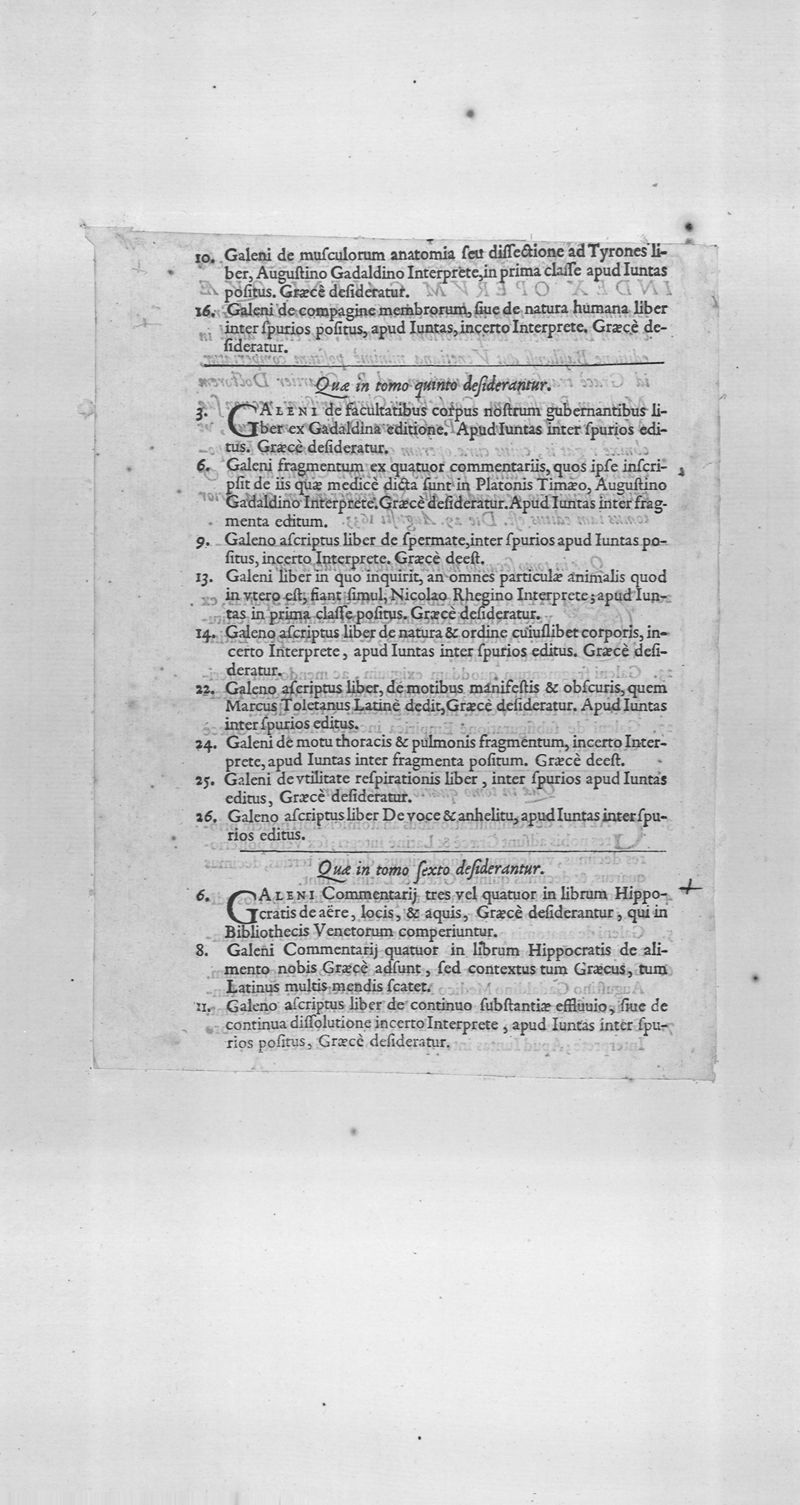 10. Galeni de muſculorum anatomia ſeu diſſectione ad Tyrones li-
ber, Auguſtino Gadaldino Interprete, in prima claſſe apud Iuntas
poſitus. Græcè deſideratur.
16. Galeni de compagine membrorum, ſiue de natura humana liber
inter ſpurios poſitus, apud Iuntas, incerto Interprete. Græcè de-
ſideratur.
Quæ in tomo quinto deſiderantur.
3. GALENI de facultatibus corpus noſtrum gubernantibus li-
ber ex Gadaldina editione. Apud Iuntas inter ſpurios edi-
tus. Græcè deſideratur.
6. Galeni fragmentum ex quatuor commentariis, quos ipſe inſcri-
pſit de iis quæ medicè dicta ſunt in Platonis Timæo, Auguſtino
Gadaldino Interprete. Græcè deſideratur. Apud Iuntas inter frag-
menta editum.
9. Galeno aſcriptus liber de ſpermate, inter ſpurios apud Iuntas po-
ſitus, incerto Interprete. Græcè deeſt.
13. Galeni liber in quo inquirit, an omnes particulæ animalis quod
in vtero eſt, fiant ſimul, Nicolao Rhegino Interprete; apud Iun-
tas in prima claſſe poſitus. Græcè deſideratur.
14. Galeno aſcriptus liber de natura & ordine cuiuſlibet corporis, in-
certo Interprete, apud Iuntas inter ſpurios editus. Græcè deſi-
deratur.
22. Galeno aſcriptus liber, de motibus manifeſtis & obſcuris, quem
Marcus Toletanus Latinè dedit, Græcè deſideratur. Apud Iuntas
inter ſpurios editus.
24. Galeni de motu thoracis & pulmonis fragmentum, incerto Inter-
prete, apud Iuntas inter fragmenta poſitum. Græcè deeſt.
25. Galeni de vtilitate reſpirationis liber, inter ſpurios apud Iuntas
editus, Græcè deſideratur.
26. Galeno aſcriptus liber De voce & anhelitu, apud Iuntas inter ſpu-
rios editus.
Quæ in tomo ſexto deſiderantur.
6. GALENI Commentarij tres vel quatuor in librum Hippo-
cratis de aëre, locis, & aquis, Græcè deſiderantur, qui in
Bibliothecis Venetorum comperiuntur.
8. Galeni Commentarij quatuor in librum Hippocratis de ali-
mento nobis Græcè adſunt, ſed contextus tum Græcus, tum
Latinus multis mendis ſcatet.
11. Galeno aſcriptus liber de continuo ſubſtantiæ effluuio, ſiue de
continua diſſolutione incerto Interprete, apud Iuntas inter ſpu-
rios poſitus, Græcè deſideratur.